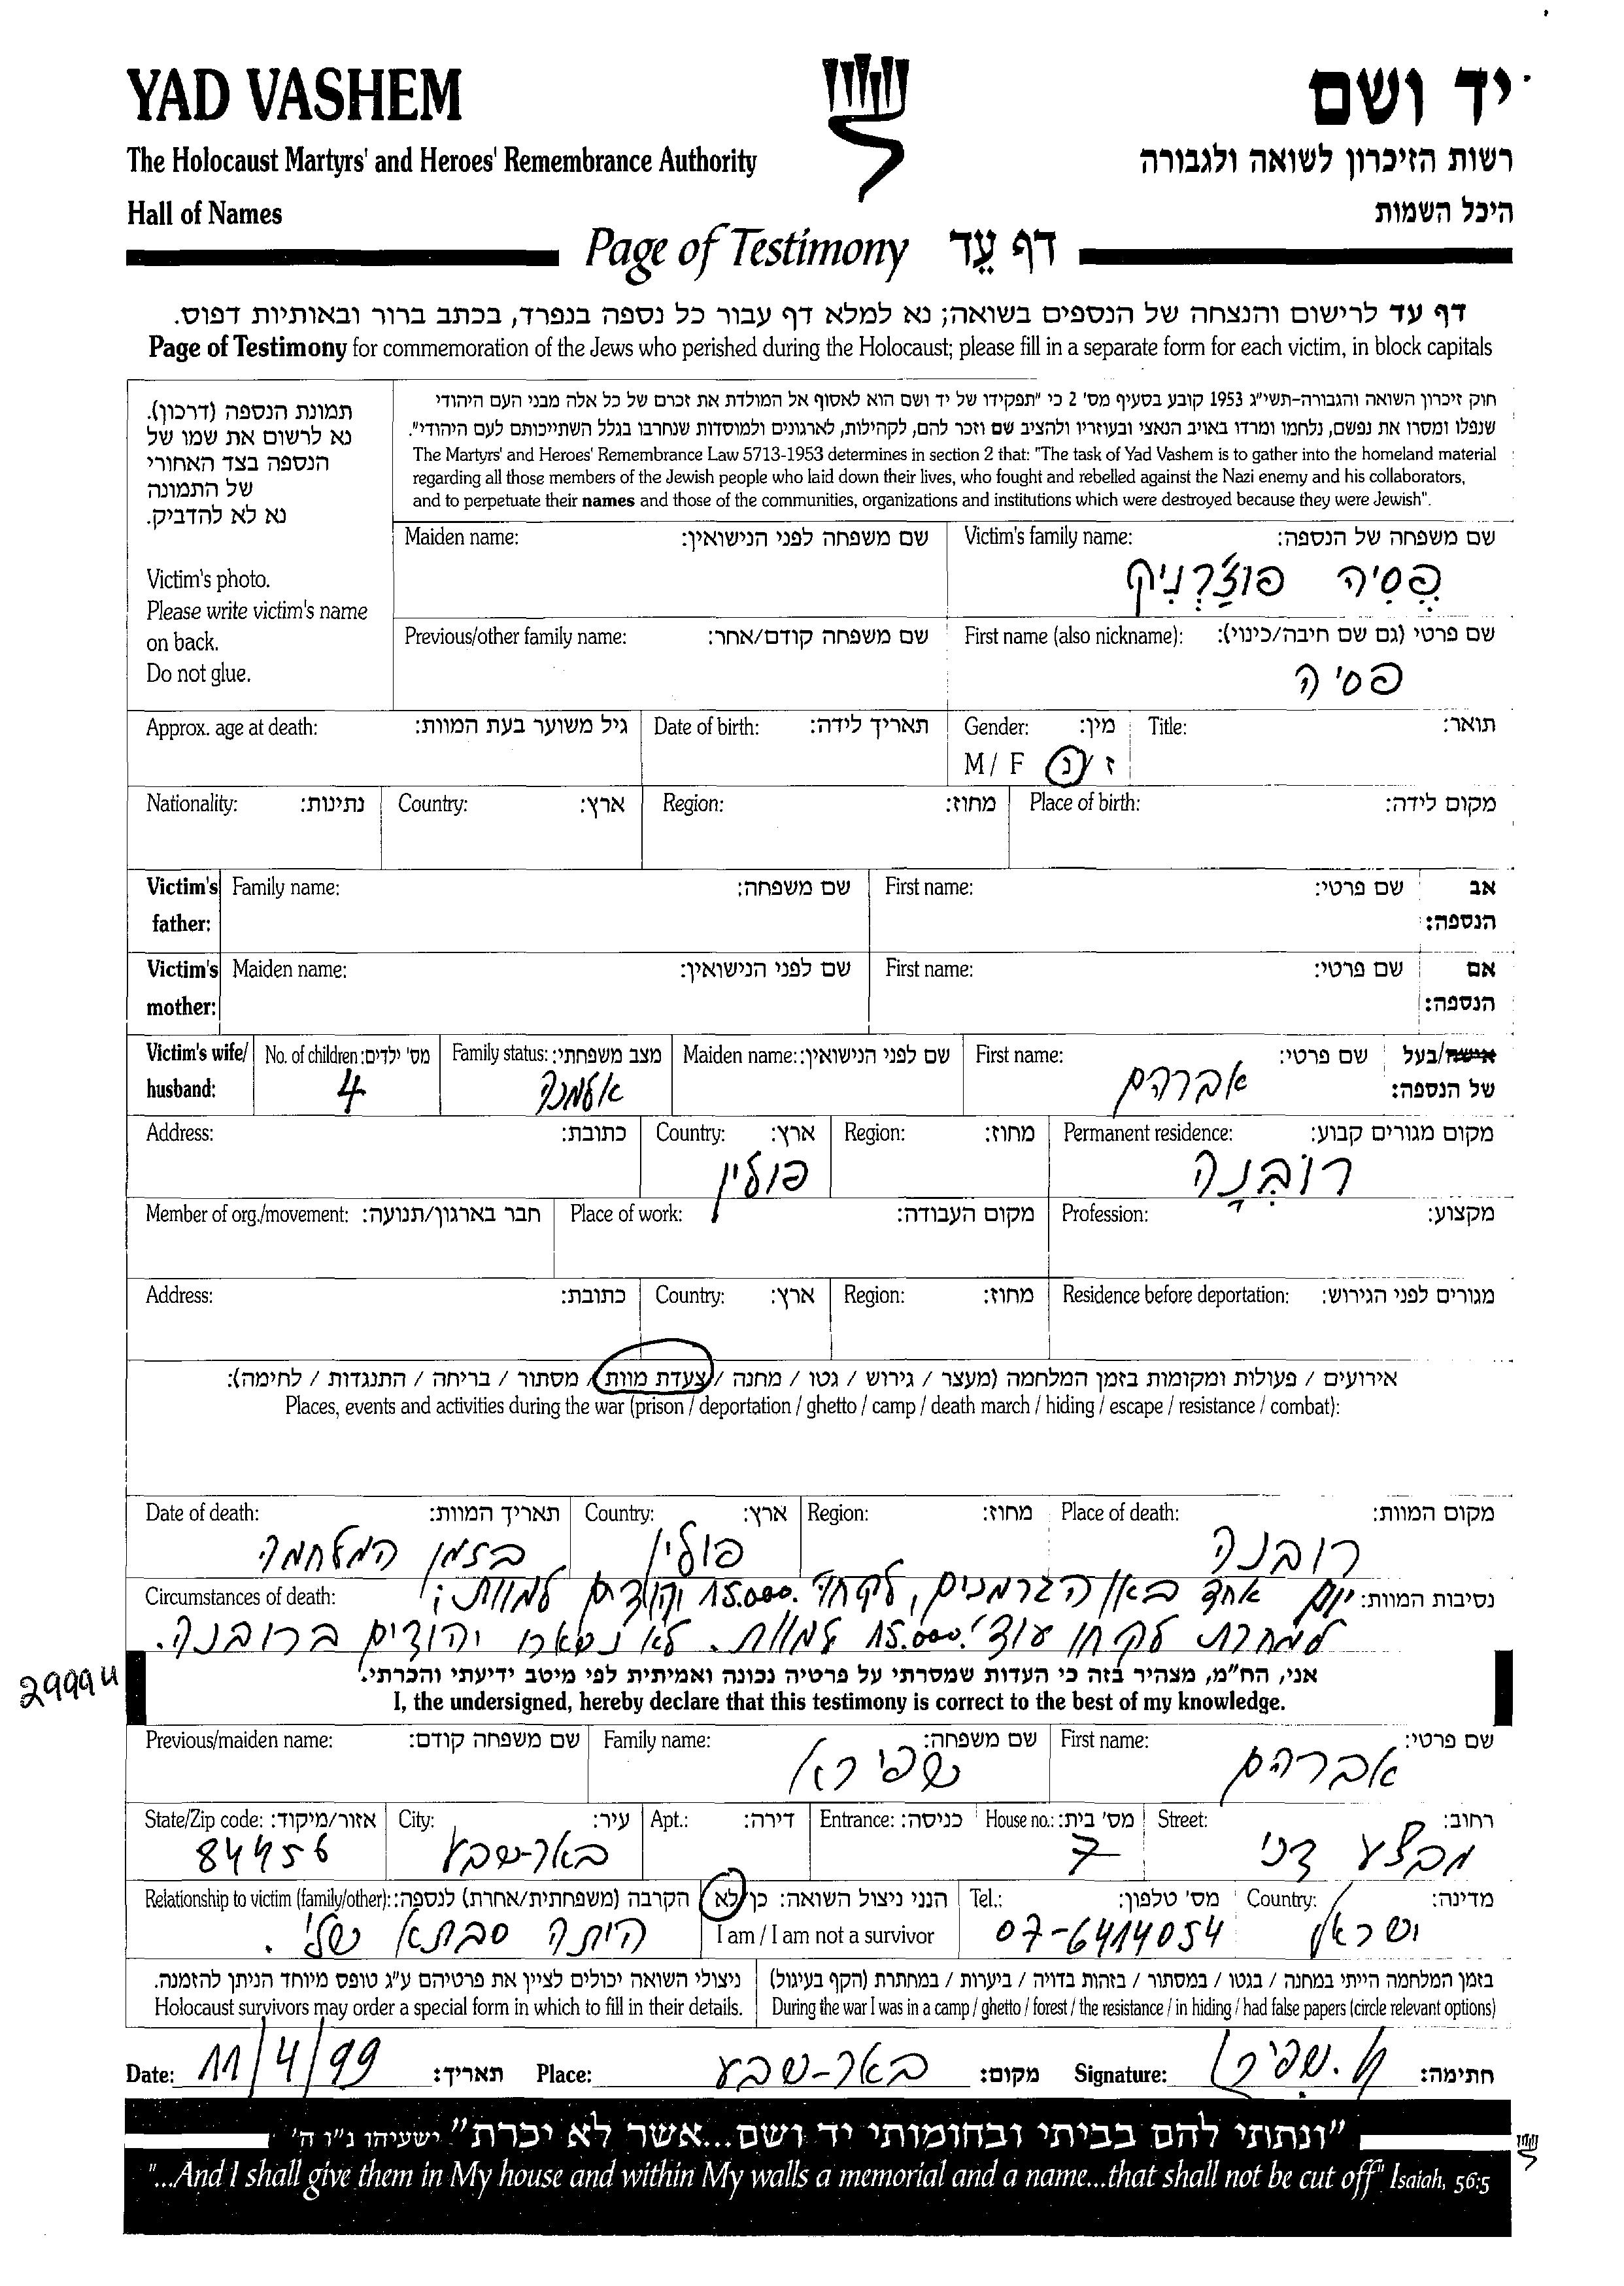 YAD VASHEM
יד ושם
The Holocaust Martyrs' and Heroes' Remembrance Authority
רשות הזיכרון לשואה ולגבורה
Hall of Names
היכל השמות
Page of Testimony דף עֵד
דף עד לרישום והנצחה של הנספים בשואה; נא למלא דף עבור כל נספה בנפרד, בכתב ברור ובאותיות דפוס.
Page of Testimony for commemoration of the Jews who perished during the Holocaust; please fill in a separate form for each victim, in block capitals
תמונת הנספה (דרכון).
נא לרשום את שמו של
הנספה בצד האחורי
של התמונה
נא לא להדביק.
Victim's photo.
Please write victim's name
on back.
Do not glue.
חוק זיכרון השואה והגבורה-תשי"ג 1953 קובע בסעיף מס' 2 כי "תפקידו של יד ושם הוא לאסוף אל המולדת את זכרם של כל אלה מבני העם היהודי
שנפלו ומסרו את נפשם, נלחמו ומרדו באויב הנאצי ובעוזריו ולהציב שם וזכר להם, לקהילות, לארגונים ולמוסדות שנחרבו בגלל השתייכותם לעם היהודי".
The Martyrs' and Heroes' Remembrance Law 5713-1953 determines in section 2 that: "The task of Yad Vashem is to gather into the homeland material
regarding all those members of the Jewish people who laid down their lives, who fought and rebelled against the Nazi enemy and his collaborators,
and to perpetuate their names and those of the communities, organizations and institutions which were destroyed because they were Jewish".
Victim's family name: שם משפחה של הנספה:
פֶסִיה פוצַ'רְנִיק
Maiden name: שם משפחה לפני הנישואין:
First name (also nickname): שם פרטי (גם שם חיבה/כינוי):
פסיה
Previous/other family name: שם משפחה קודם/אחר:
Title: תואר:
Gender: מין:
M / F ז / נ
Date of birth: תאריך לידה:
Approx. age at death: גיל משוער בעת המוות:
Place of birth: מקום לידה:
Region: מחוז:
Country: ארץ:
Nationality: נתינות:
Victim's father: אב הנספה:
First name: שם פרטי:
Family name: שם משפחה:
Victim's mother: אם הנספה:
First name: שם פרטי:
Maiden name: שם לפני הנישואין:
Victim's wife/ husband: אישה/בעל של הנספה:
First name: שם פרטי:
אברהם
Maiden name: שם לפני הנישואין:
Family status: מצב משפחתי:
אלמנה
No. of children: מס' ילדים:
4
Permanent residence: מקום מגורים קבוע:
רוֹבְנָה
Region: מחוז:
Country: ארץ:
פולין
Address: כתובת:
Profession: מקצוע:
Place of work: מקום העבודה:
Member of org./movement: חבר בארגון/תנועה:
Residence before deportation: מגורים לפני הגירוש:
Region: מחוז:
Country: ארץ:
Address: כתובת:
אירועים / פעולות ומקומות בזמן המלחמה (מעצר / גירוש / גטו / מחנה / צעדת מוות / מסתור / בריחה / התנגדות / לחימה):
Places, events and activities during the war (prison / deportation / ghetto / camp / death march / hiding / escape / resistance / combat):
Place of death: מקום המוות:
רובנה
Region: מחוז:
Country: ארץ:
פולין
Date of death: תאריך המוות:
בזמן המלחמה
Circumstances of death: נסיבות המוות:
יום אחד באו הגרמנים, לקחו 15.000 יהודים למוות;
למחרת לקחו עוד 15.000 למוות. לא נשארו יהודים ברובנה.
2999u
אני, הח"מ, מצהיר בזה כי העדות שמסרתי על פרטיה נכונה ואמיתית לפי מיטב ידיעתי והכרתי.
I, the undersigned, hereby declare that this testimony is correct to the best of my knowledge.
First name: שם פרטי:
אברהם
Family name: שם משפחה:
שפירא
Previous/maiden name: שם משפחה קודם:
Street: רחוב:
מבצע דני
House no.: מס' בית:
7
Entrance: כניסה:
Apt.: דירה:
City: עיר:
באר-שבע
State/Zip code: אזור/מיקוד:
84456
Country: מדינה:
ישראל
Tel.: מס' טלפון:
07-6414054
הנני ניצול השואה: כן/לא
I am / I am not a survivor
Relationship to victim (family/other): הקרבה (משפחתית/אחרת) לנספה:
היתה סבתא שלי.
בזמן המלחמה הייתי במחנה / בגטו / במסתור / בזהות בדויה / ביערות / במחתרת (הקף בעיגול)
During the war I was in a camp / ghetto / forest / the resistance / in hiding / had false papers (circle relevant options)
ניצולי השואה יכולים לציין את פרטיהם ע"ג טופס מיוחד הניתן להזמנה.
Holocaust survivors may order a special form in which to fill in their details.
Date: 11/4/99 תאריך: Place: באר-שבע מקום: Signature: א. שפירא חתימה:
"ונתתי להם בביתי ובחומותי יד ושם...אשר לא יכרת" ישעיהו נ"ו ה'
"...And I shall give them in My house and within My walls a memorial and a name...that shall not be cut off" Isaiah, 56:5